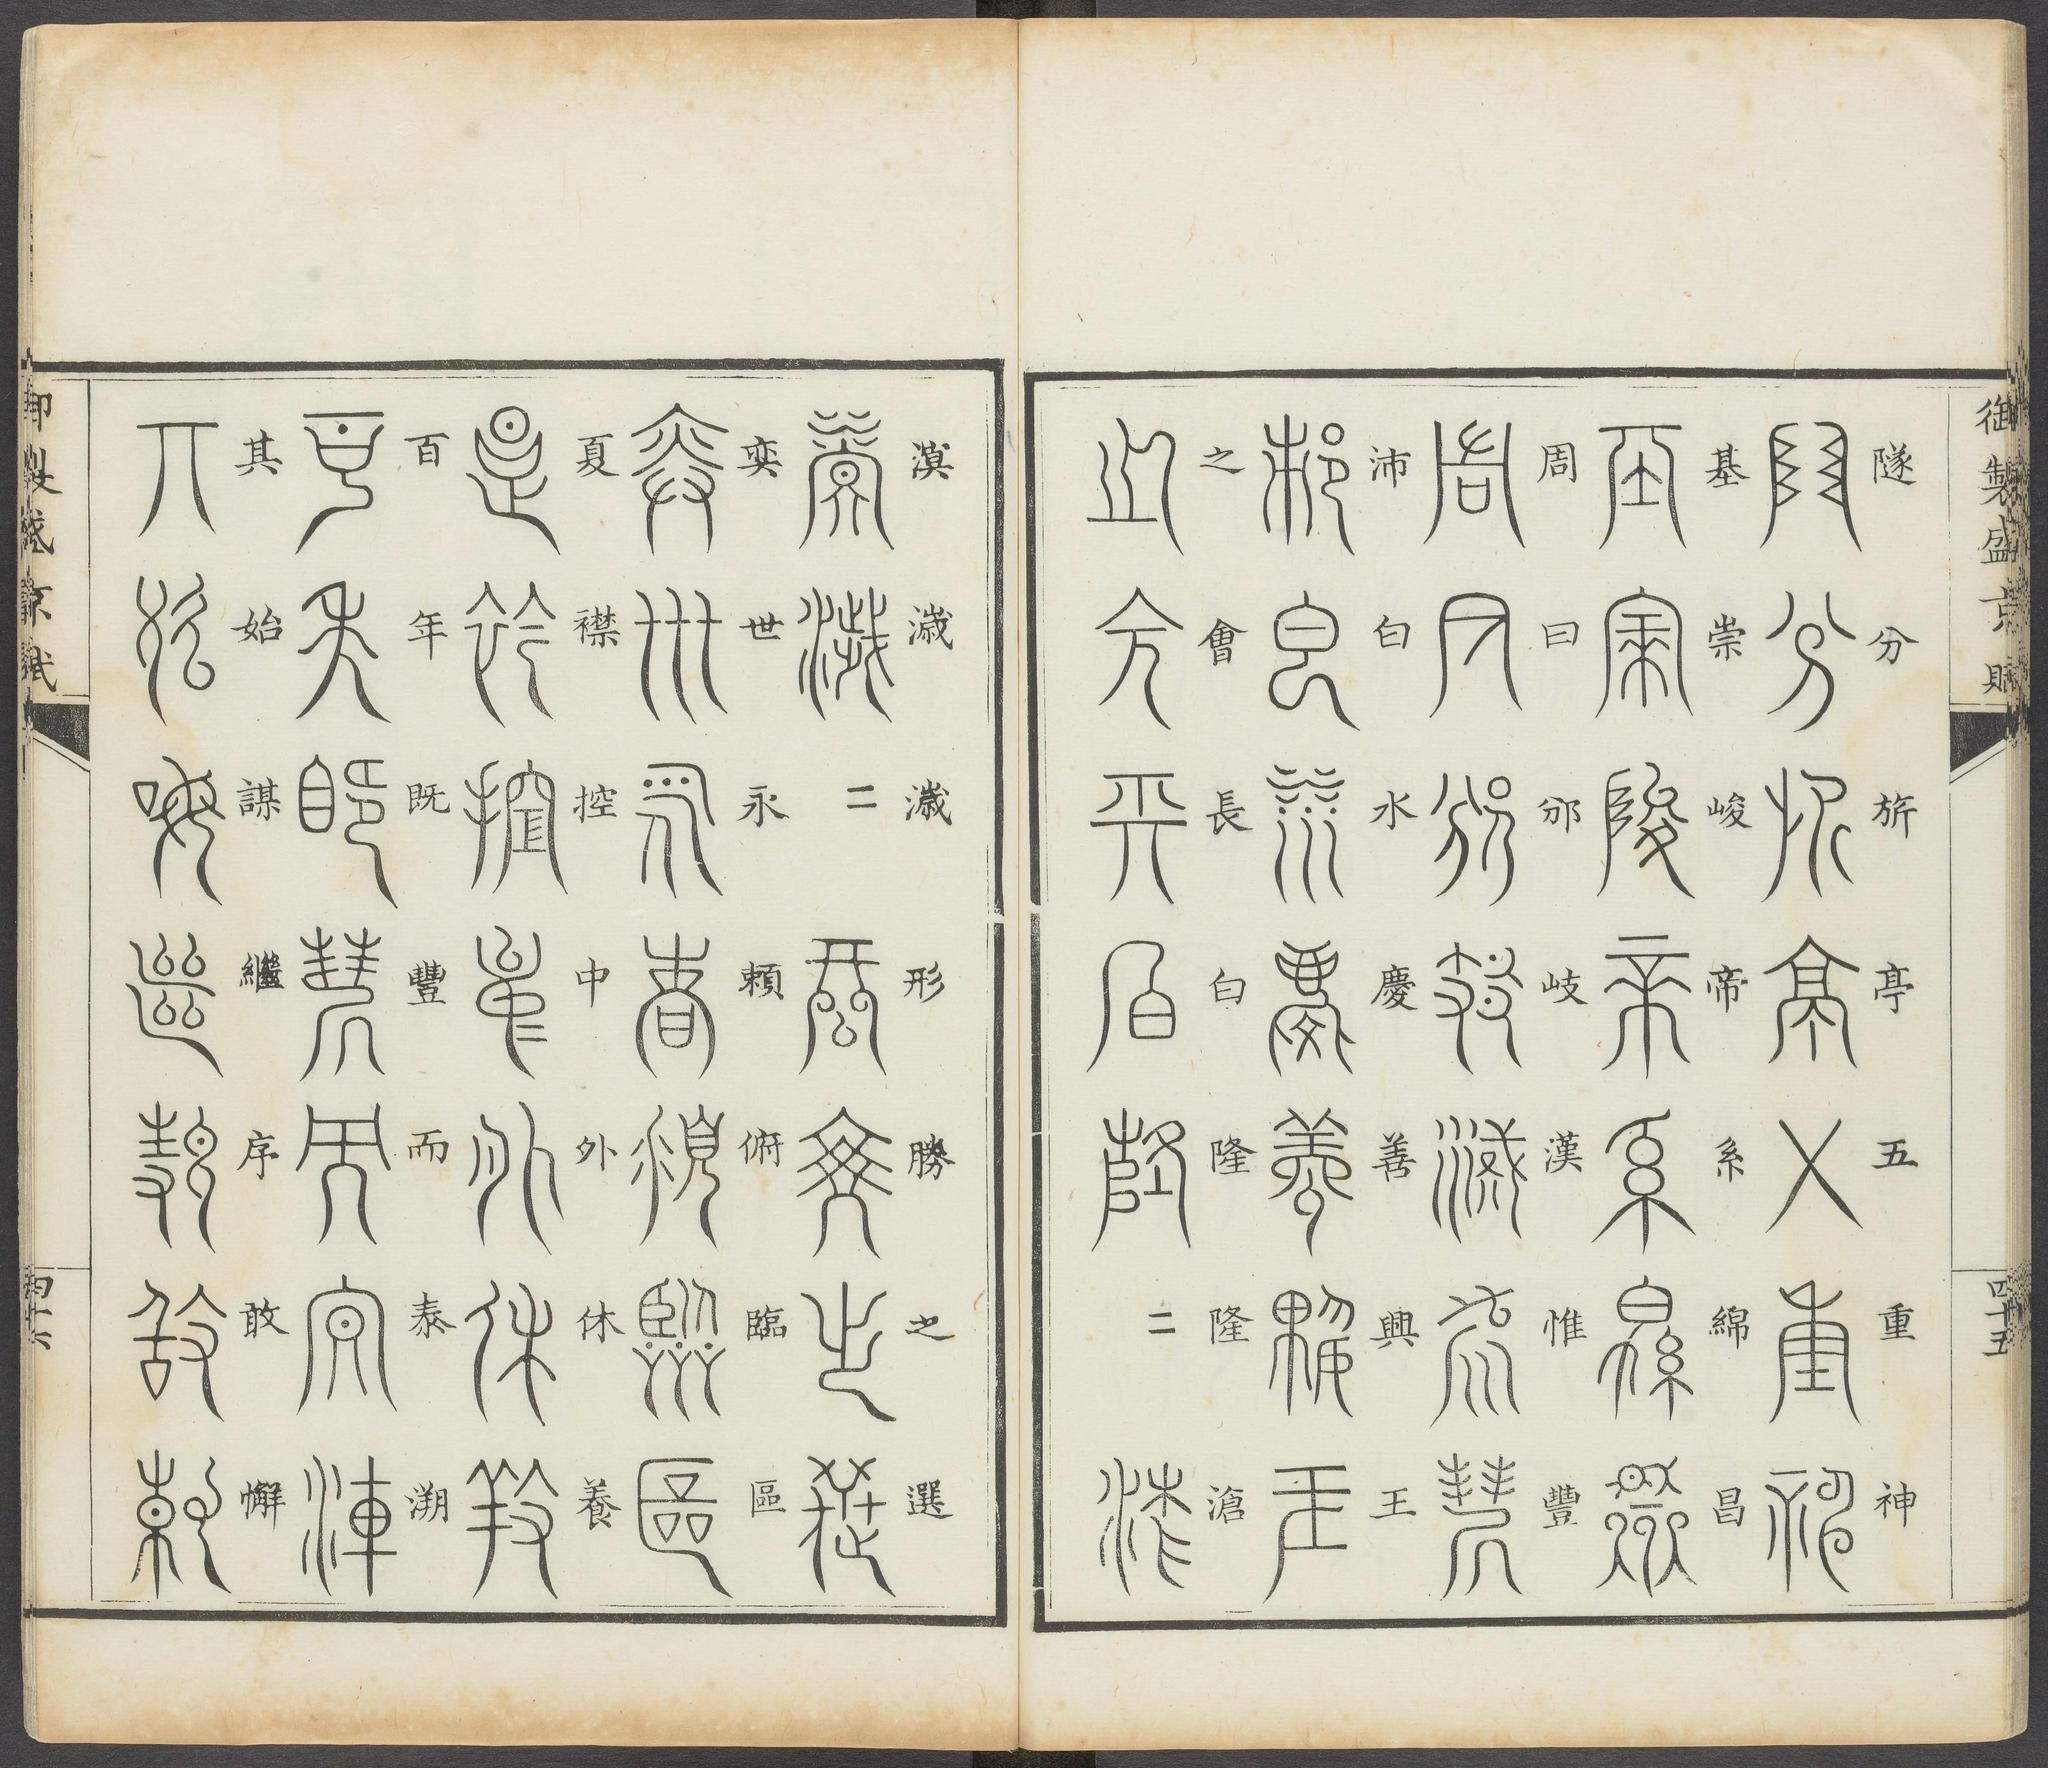 御製盛京賦
四十五
隧分旂亭五重神
基崇峻帝系綿昌
周曰邠岐漢惟豐
沛白水慶善興王
之會長白隆隆滄
漠濊濊形勝之選
奕世永賴俯臨區
夏襟控中外休養
百年既豐而泰溯
其始謀繼序敢懈
御製盛京賦
四十六